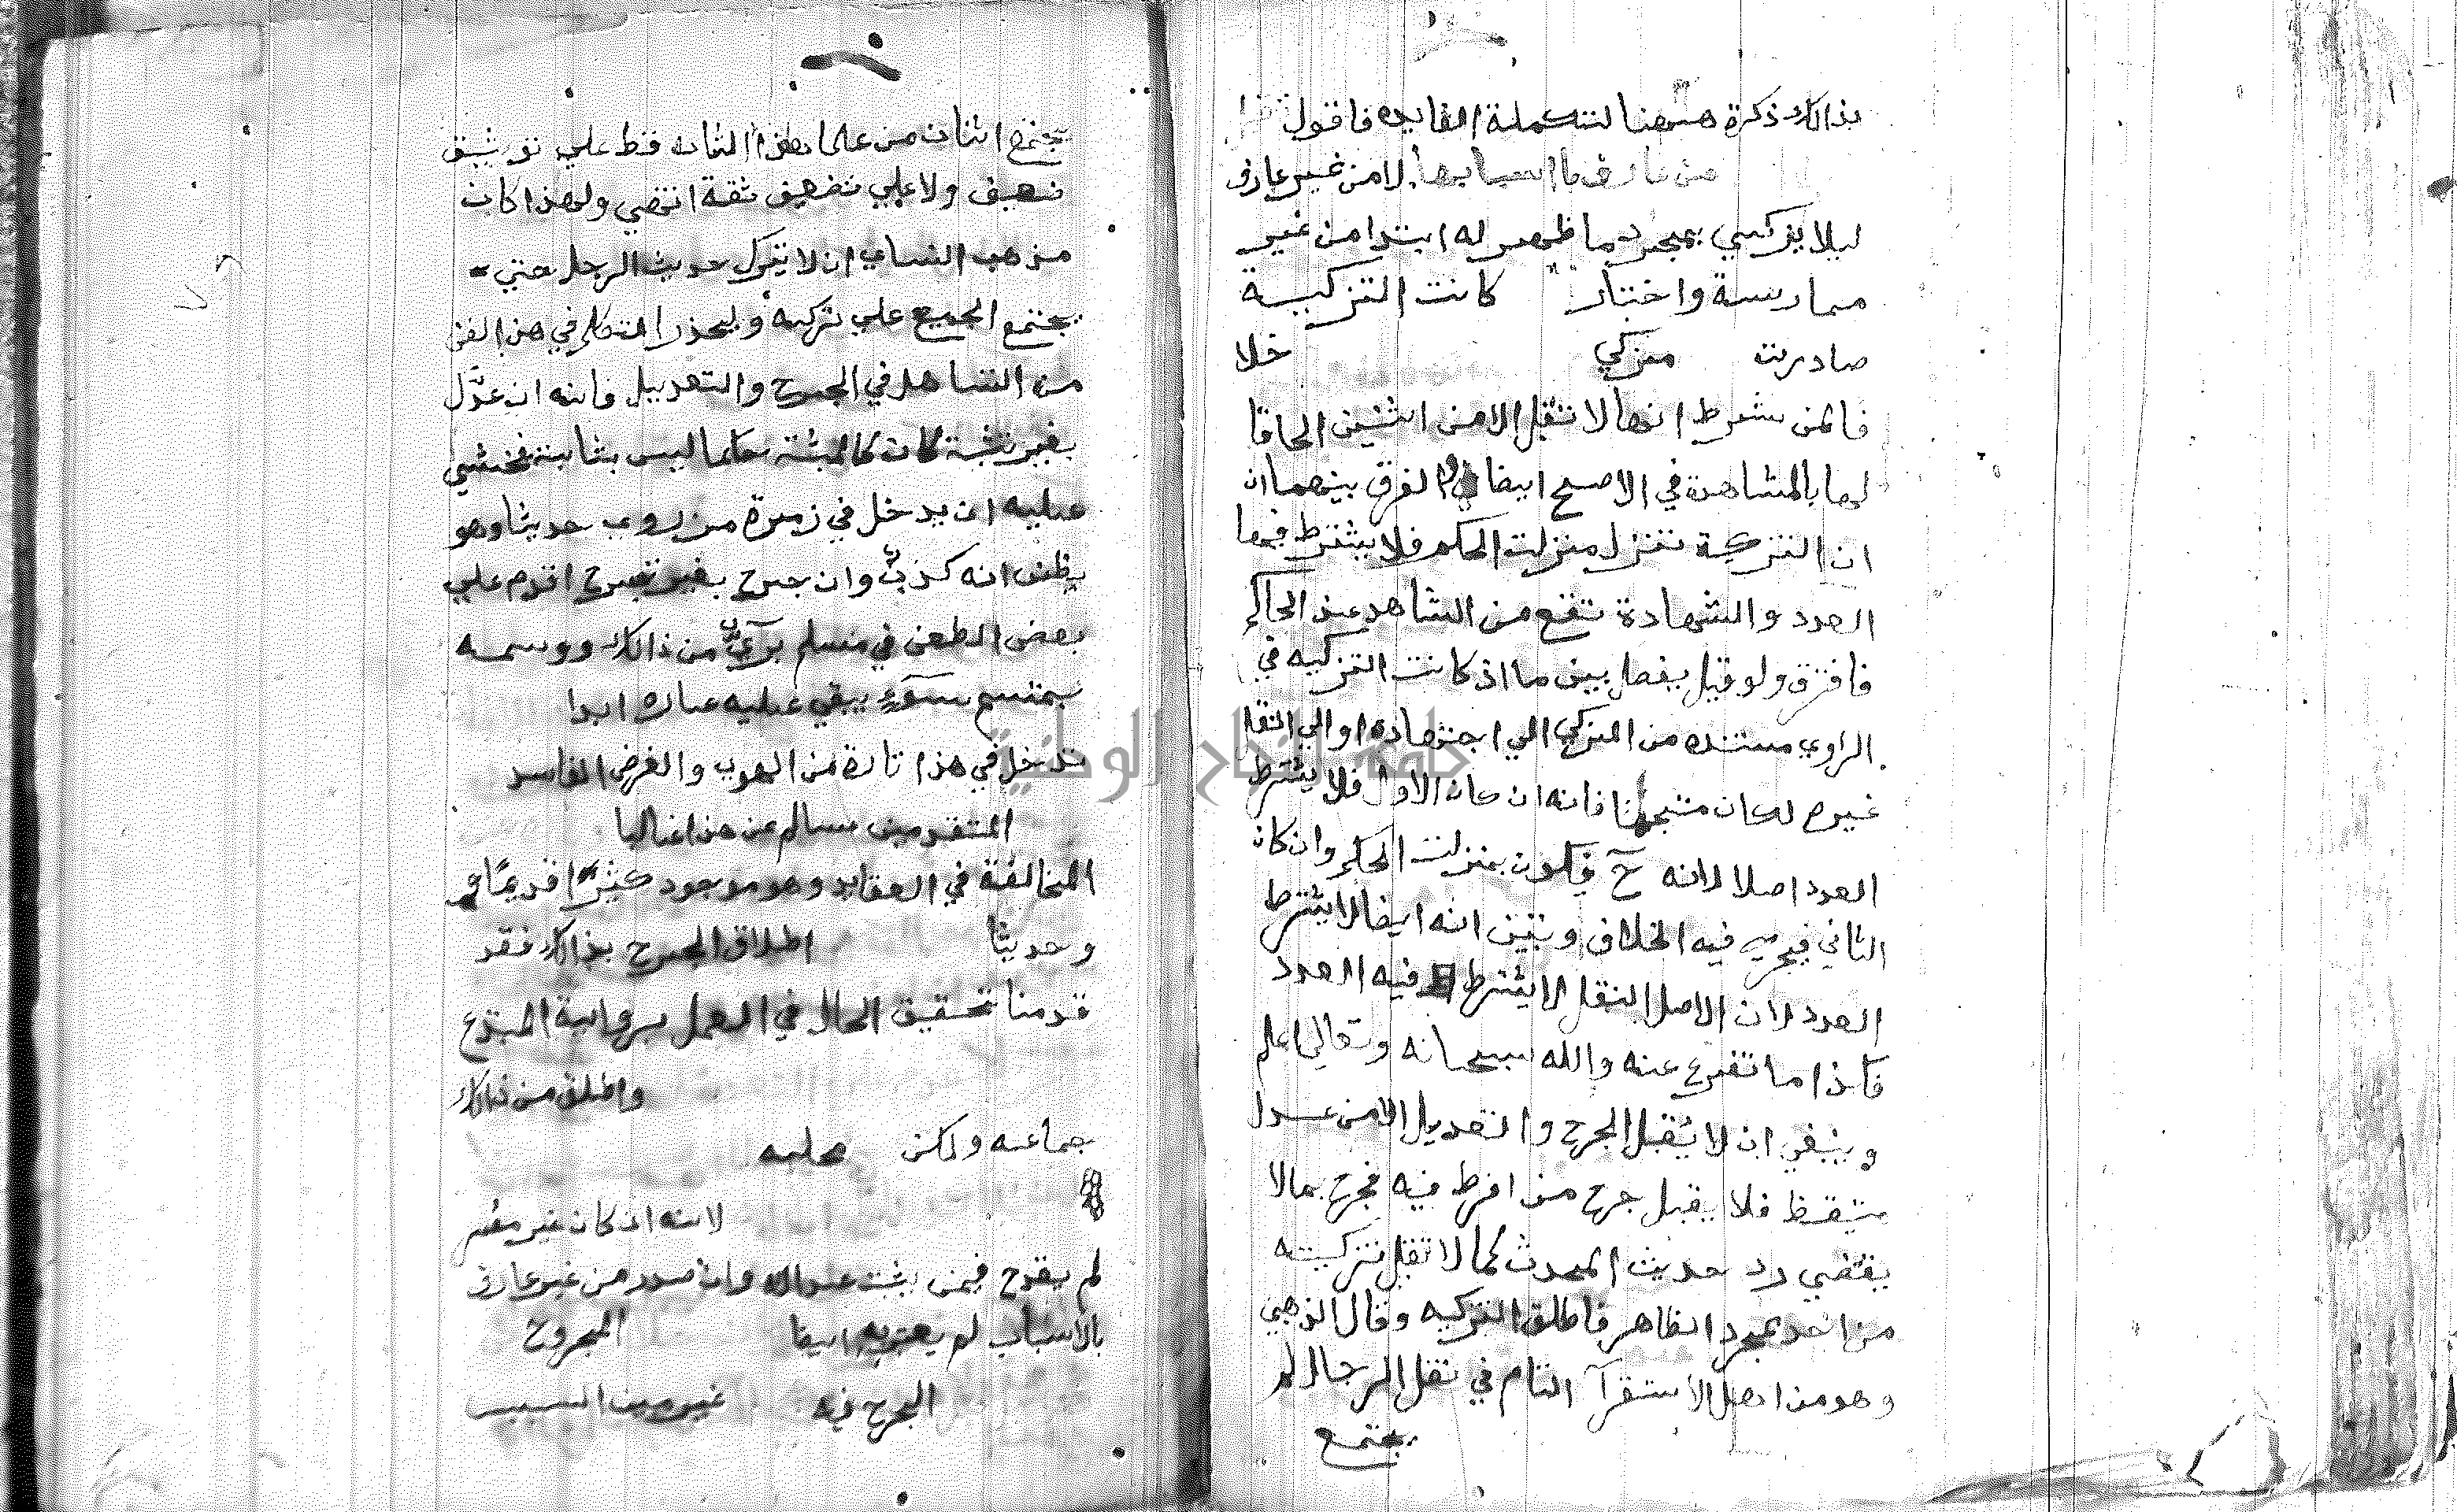 بذالك ذكرة ههنا لتكملة الفايده فاقول
من عارف باسبابها لا من غير عارف
ليلا يزكي بمجرد ما ظهر له ابتدا من غير
ممارسة واختبار كانت التزكية
صادرت مزكي خلا
فالمن شرط انها لا تقبل الا من اثنين الحاقا
لها بالمشاهدة في الاصح ايضا والفرق بينهما ان
ان التزكية تنزل منزلت الحكم فلا يشترط فيها
العدد والشهادة تقع من الشاهد عند الحاكم
فافترق ولو قيل يفصل بين ما اذ كانت التزكيه في
الراوي مستنده من المزكي الي اجتهاده او الي النقل
غيره لكان متجها فانه ان كان الاول فلا يشترط
العدد اصلا لانه ح فيكون بمنزلت الحكم وان كان
الثاني فيجري فيه الخلاف وتبين انه ايضا لا يشترط
العدد لان الاصل النقل لا يشترط فيه العدد
فكذا ما تفرع عنه والله سبحانه وتعالي اعلم
وينبغي ان لا يقبل الجرح والتعديل الا من عدل
متيقظ فلا يقبل جرح من افرط فيه فجرح بمالا
يقتضي رد حديث المحدث كما لا تقبل تزكيته
من اخد بمجرد الظاهر فاطلق التزكيه وقال الذهبي
وهو من اهل الاستقرآ التام في نقل الرجال لم
يجتمع
يجتمع اثنان من علما هذا الشان قط علي توثيق
ضعيف ولا علي تضعيف ثقة انتهي ولهذا كان
مذهب النساي ان لا يترك حديث الرجل حتي
يجتمع الجميع علي تركه وليحذر المتكلم في هذ الفن
من التساهل في الجرح والتعديل فانه ان عدّل
بغير تثبة كان كالمثبة حكما ليس بثابت فيخشي
عليه ان يدخل في زمرة من روي حديثا وهو
يظن انه كذب وان جرح بغير تحرج اقدم علي
بعض الطعن في مسلم بريء من ذالك ووسمه
بميسم سوء يبقي عليه عاره ابدا
تدخل في هذا تارة من الهوي والغرض الفاسد
المتقدمين سالم عن هذا غالبا
المخالفة في العقايد وهو موجود كثيرا قديما
وحديثا اطلاق الجرح بذالك فقد
قدمنا تحقيق الحال في العمل برواية المبتدع
واطلق من ذالك
جماعه ولكن محله
لانه ان كان غير مفسر
لم يقدح فيمن يثبت عدالته وان صدر من غير عارف
بالاسباب لم يعتبر به ايضا المجروح
الجرح فيه غير مبين السبب